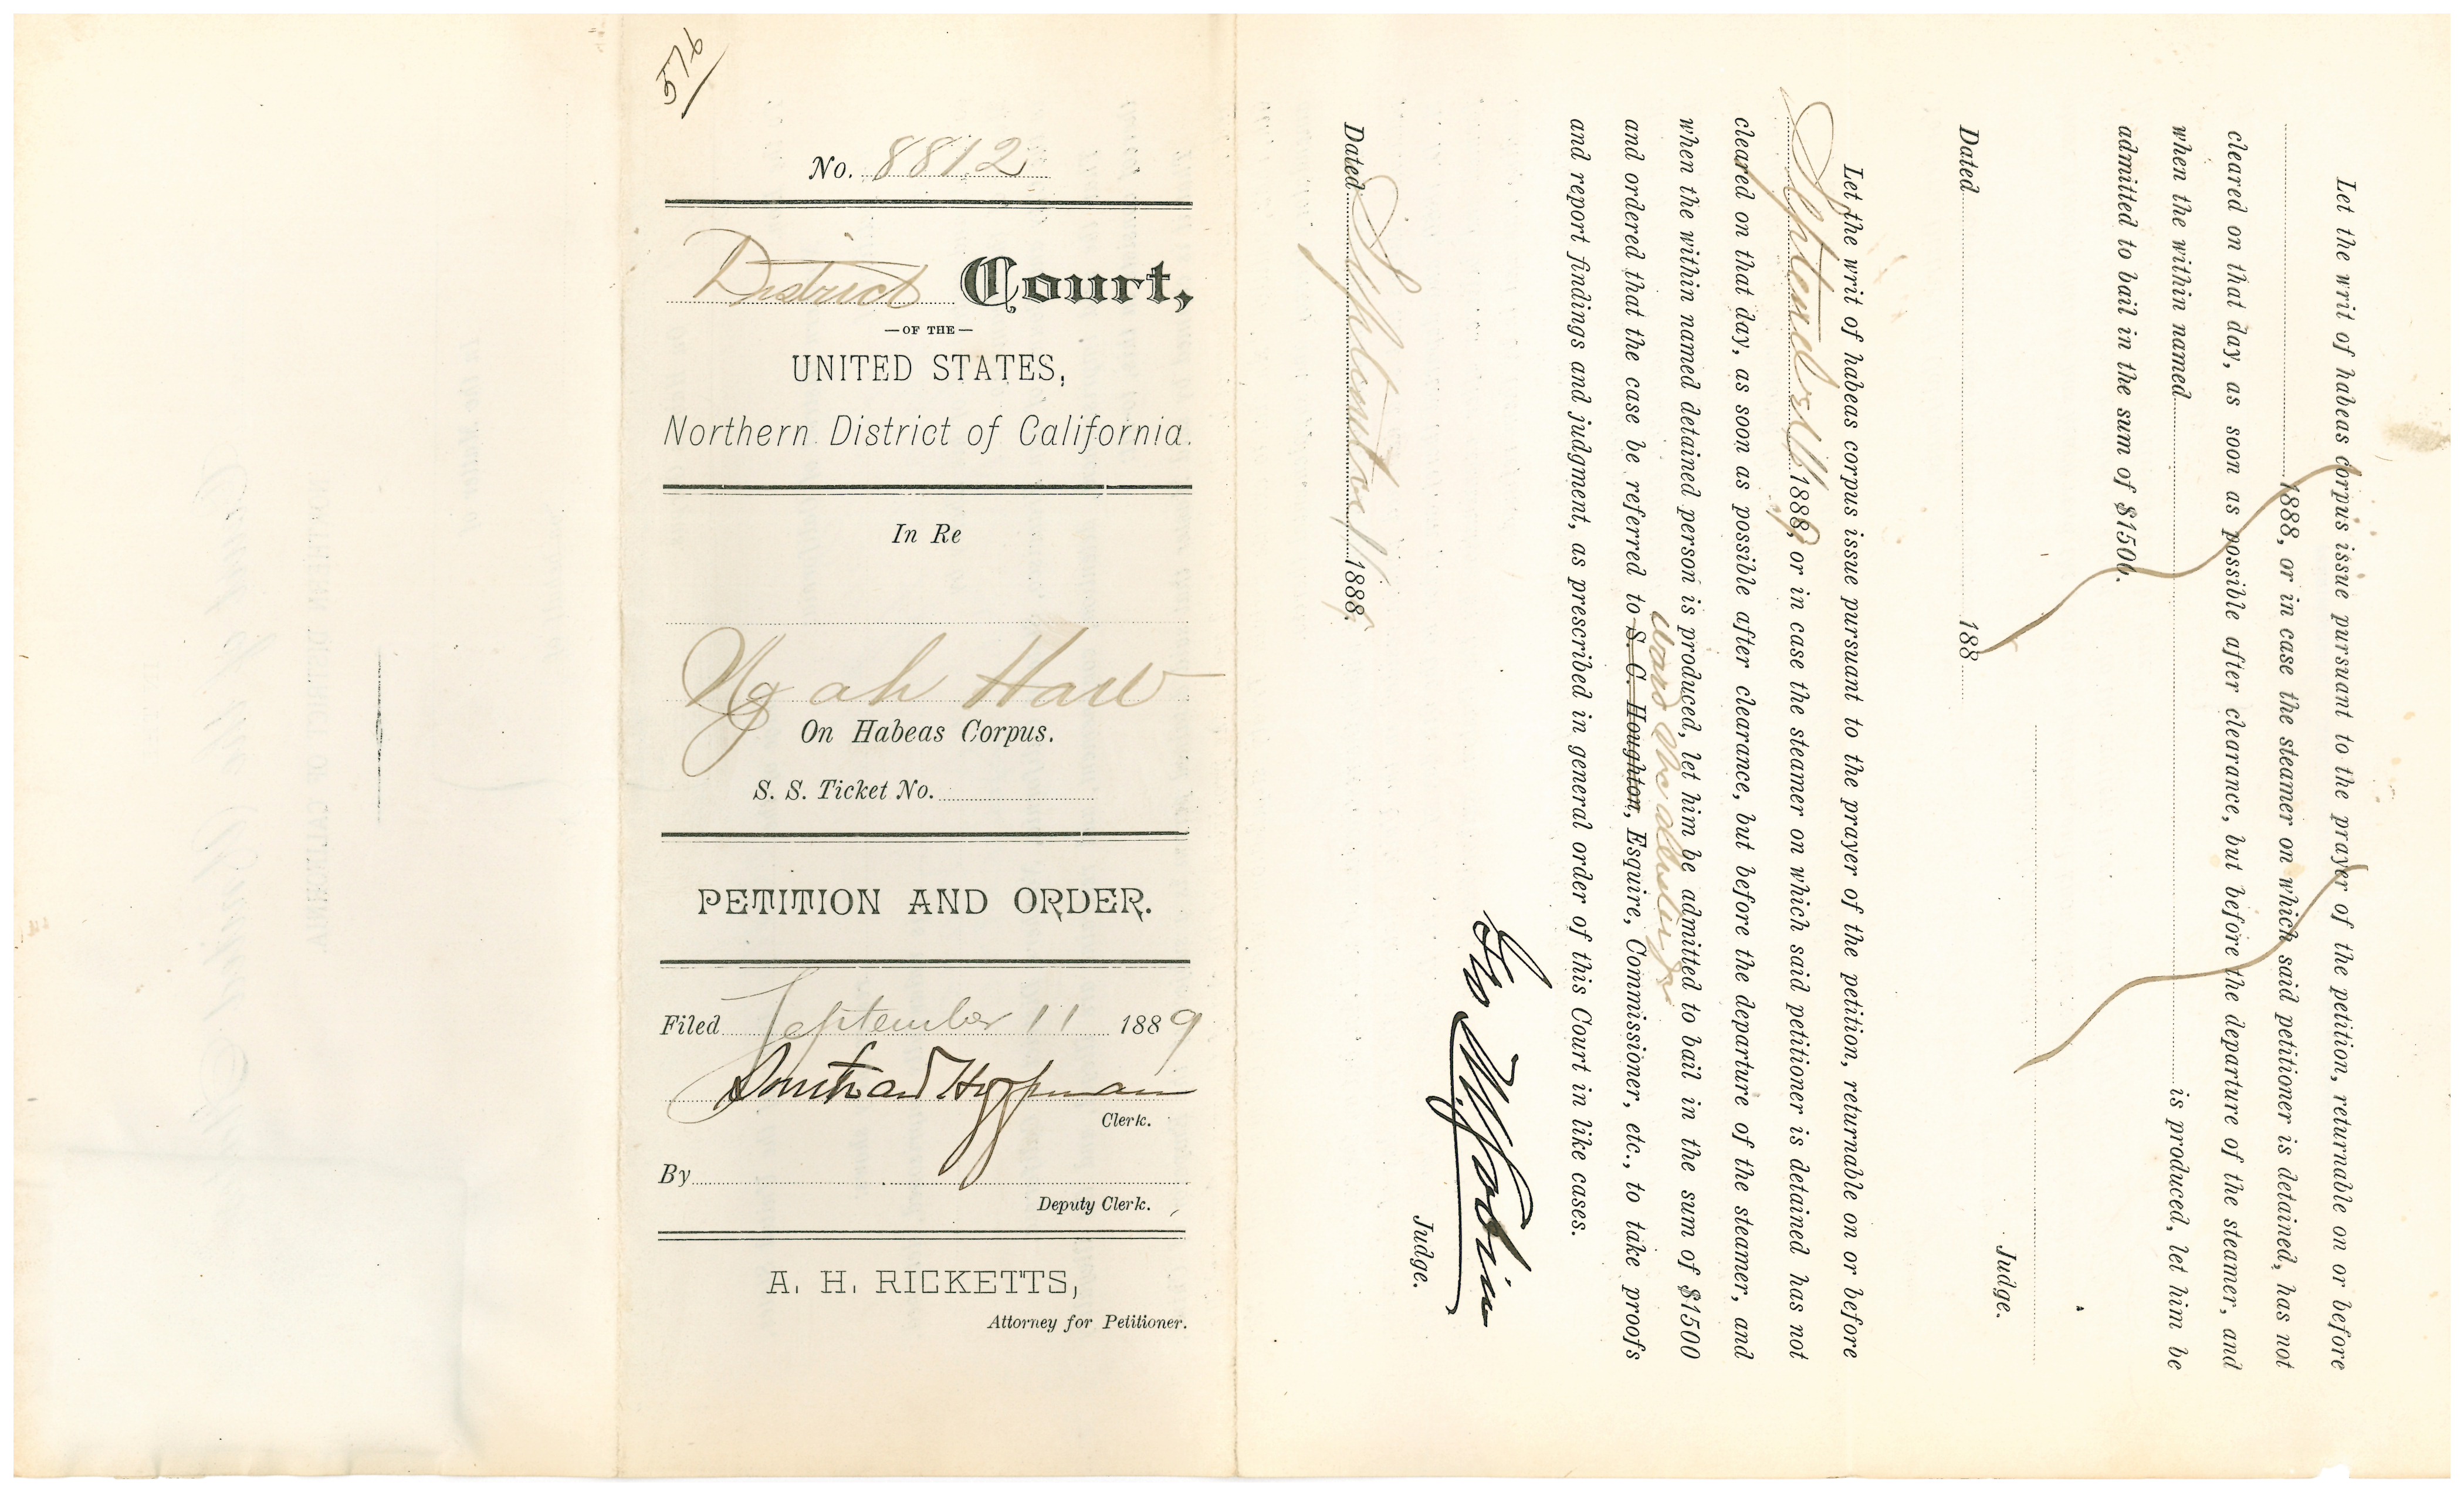 576
No. 8812
District Court,
—OF THE—
UNITED STATES,
Northern District of California.
In Re
Ng ah Haw
On Habeas Corpus.
S. S. Ticket No.
PETITION AND ORDER.
Filed September 11 1889
Southard Hoffman
Clerk.
By
Deputy Clerk.
A. H. RICKETTS,
Attorney for Petitioner.
Let the writ of habeas corpus issue pursuant to the prayer of the petition, returnable on or before
1888, or in case the steamer on which said petitioner is detained, has not
cleared on that day, as soon as possible after clearance, but before the departure of the steamer, and
when the within named is produced, let him be
admitted to bail in the sum of $1500.
Dated 188
Judge.
Let the writ of habeas corpus issue pursuant to the prayer of the petition, returnable on or before
September 1889, or in case the steamer on which said petitioner is detained has not
cleared on that day, as soon as possible after clearance, but before the departure of the steamer, and
when the within named detained person is produced, let him be admitted to bail in the sum of $1500
Ward McAllister Jr
and ordered that the case be referred to S. C. Houghton, Esquire, Commissioner, etc., to take proofs
and report findings and judgment, as prescribed in general order of this Court in like cases.
Judge.
Dated September 11 1889.